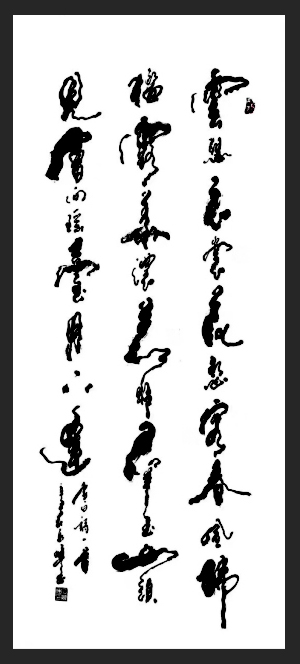 雲想衣裳花想容春風拂
檻露華濃若非群玉山頭
見會向瑤臺月下逢
李白詩一首